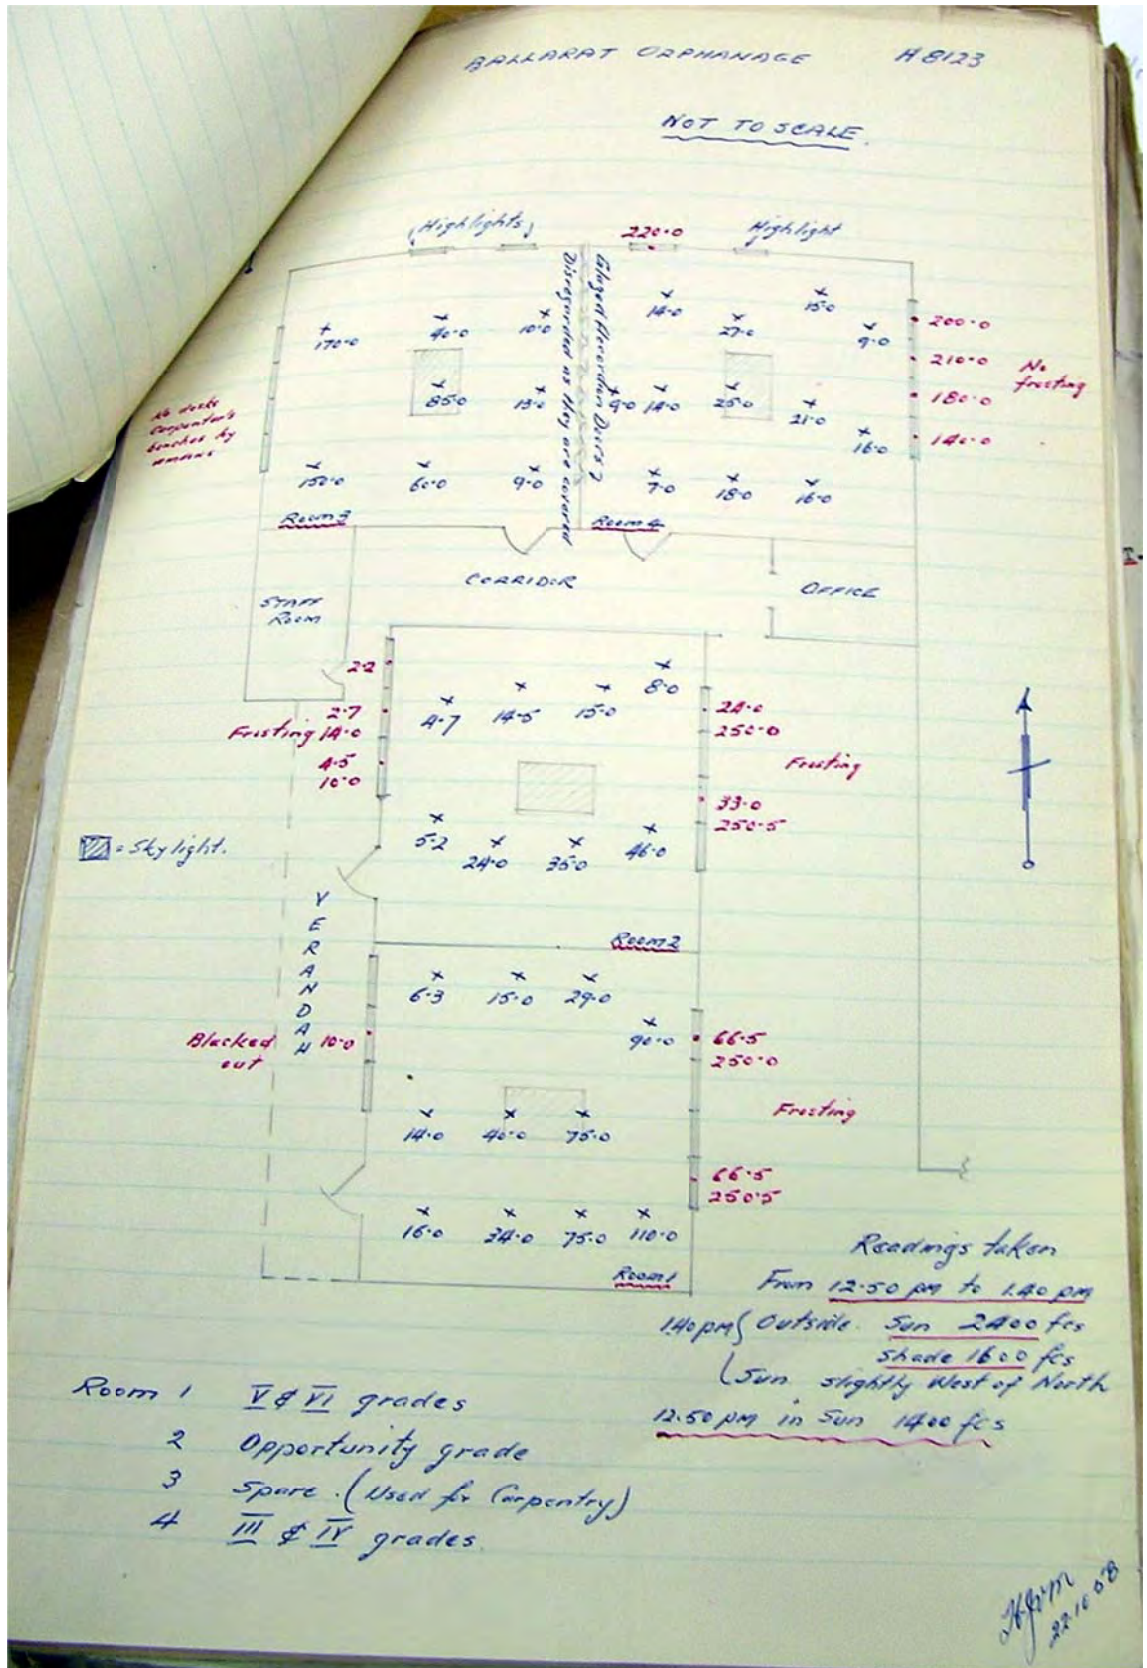 BALLARAT ORPHANAGE H 8123
NOT TO SCALE.
(Highlights)
220.0
Highlight
Glazed Accordion Doors ?
Disregarded as they are covered
170.0 40.0 10.0
85.0 13.0
150.0 60.0 9.0
Room 3
14.0 27.0 15.0 9.0
9.0 14.0 25.0 21.0 16.0
7.0 18.0 16.0
Room 4
200.0
210.0
180.0
140.0
No
frosting
No desks
Carpenter's
benches by
CORRIDOR
STAFF
ROOM
OFFICE
2.2
2.7
Frosting 14.0
4.5
10.0
4.7 14.5 15.0 8.0
5.2 24.0 35.0 46.0
24.0
250.0
Frosting
33.0
250.5
Room 2
= Skylight.
VERANDAH
6.3 15.0 29.0 90.0
Blacked
out
10.0
66.5
250.0
Frosting
14.0 40.0 75.0
66.5
250.5
16.0 34.0 75.0 110.0
Room 1
Readings taken
From 12.50 pm to 1.40 pm
1.40 pm { Outside. Sun 2400 fcs
Shade 1600 fcs
Sun slightly West of North
12.50 pm in Sun 1400 fcs
Room 1 V & VI grades
2 Opportunity grade
3 Spare. (Used for Carpentry)
4 III & IV grades.
22.10.58